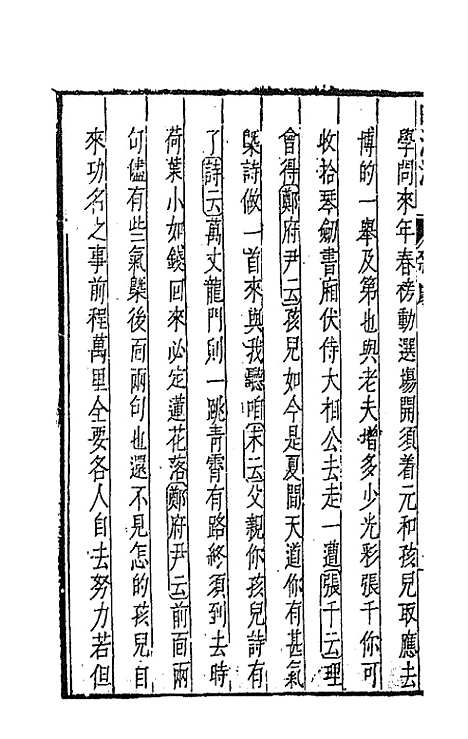 學問來年春榜動選場開須着元和孩兒取應去
博的一舉及第也與老夫增多少光彩張千你可
收拾琴劍書廂伏侍大相公去走一遭張千云理
會得鄭府尹云孩兒如今是夏間天道你有甚氣
槩詩做一首來與我聽咱末云父親你孩兒詩有
了詩云萬丈龍門則一跳青霄有路終須到去時
荷葉小如錢回來必定蓮花落鄭府尹云前面兩
句儘有些氣槩後面兩句也還不見怎的孩兒自
來功名之事前程萬里全要各人自去努力若但